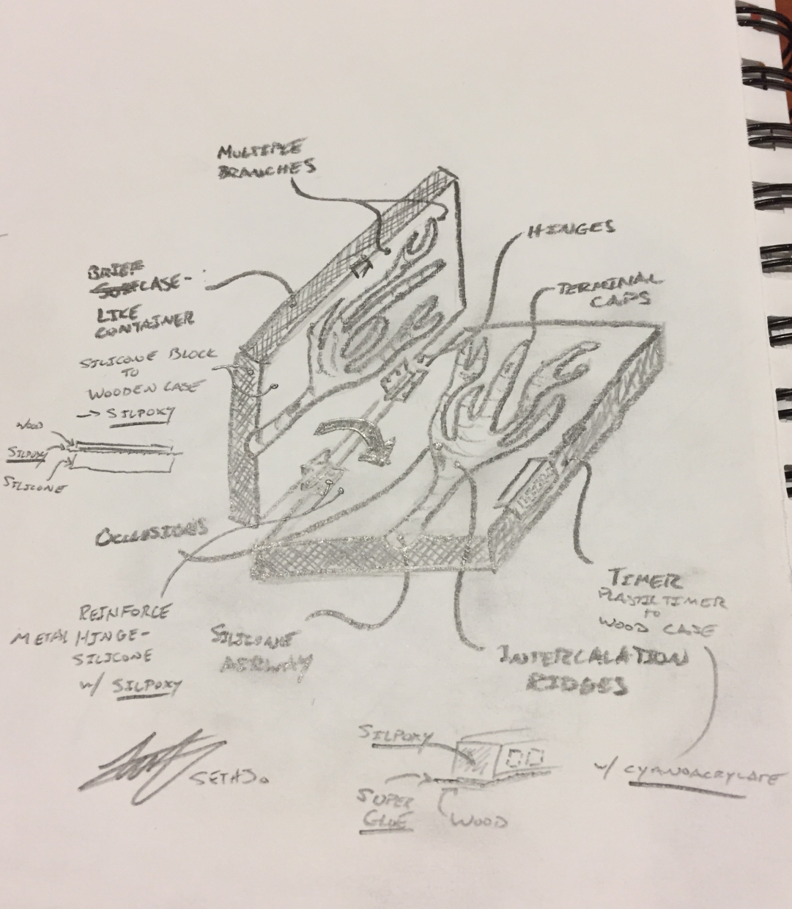 MULTIPLE
BRANCHES
HINGES
TERMINAL
CAPS
BRIEF
CASE-
LIKE
CONTAINER
SILICONE BLOCK
TO
WOODEN CASE
→ SILPOXY
WOOD
SILPOXY
SILICONE
OCCLUSIONS
REINFORCE
METAL HINGE-
SILICONE
w/ SILPOXY
SILICONE
AIRWAY
TIMER
PLASTIC TIMER
TO
WOOD CASE
INTERCALATION
RIDGES
w/ CYANOACRYLATE
SILPOXY
SUPER
GLUE
WOOD